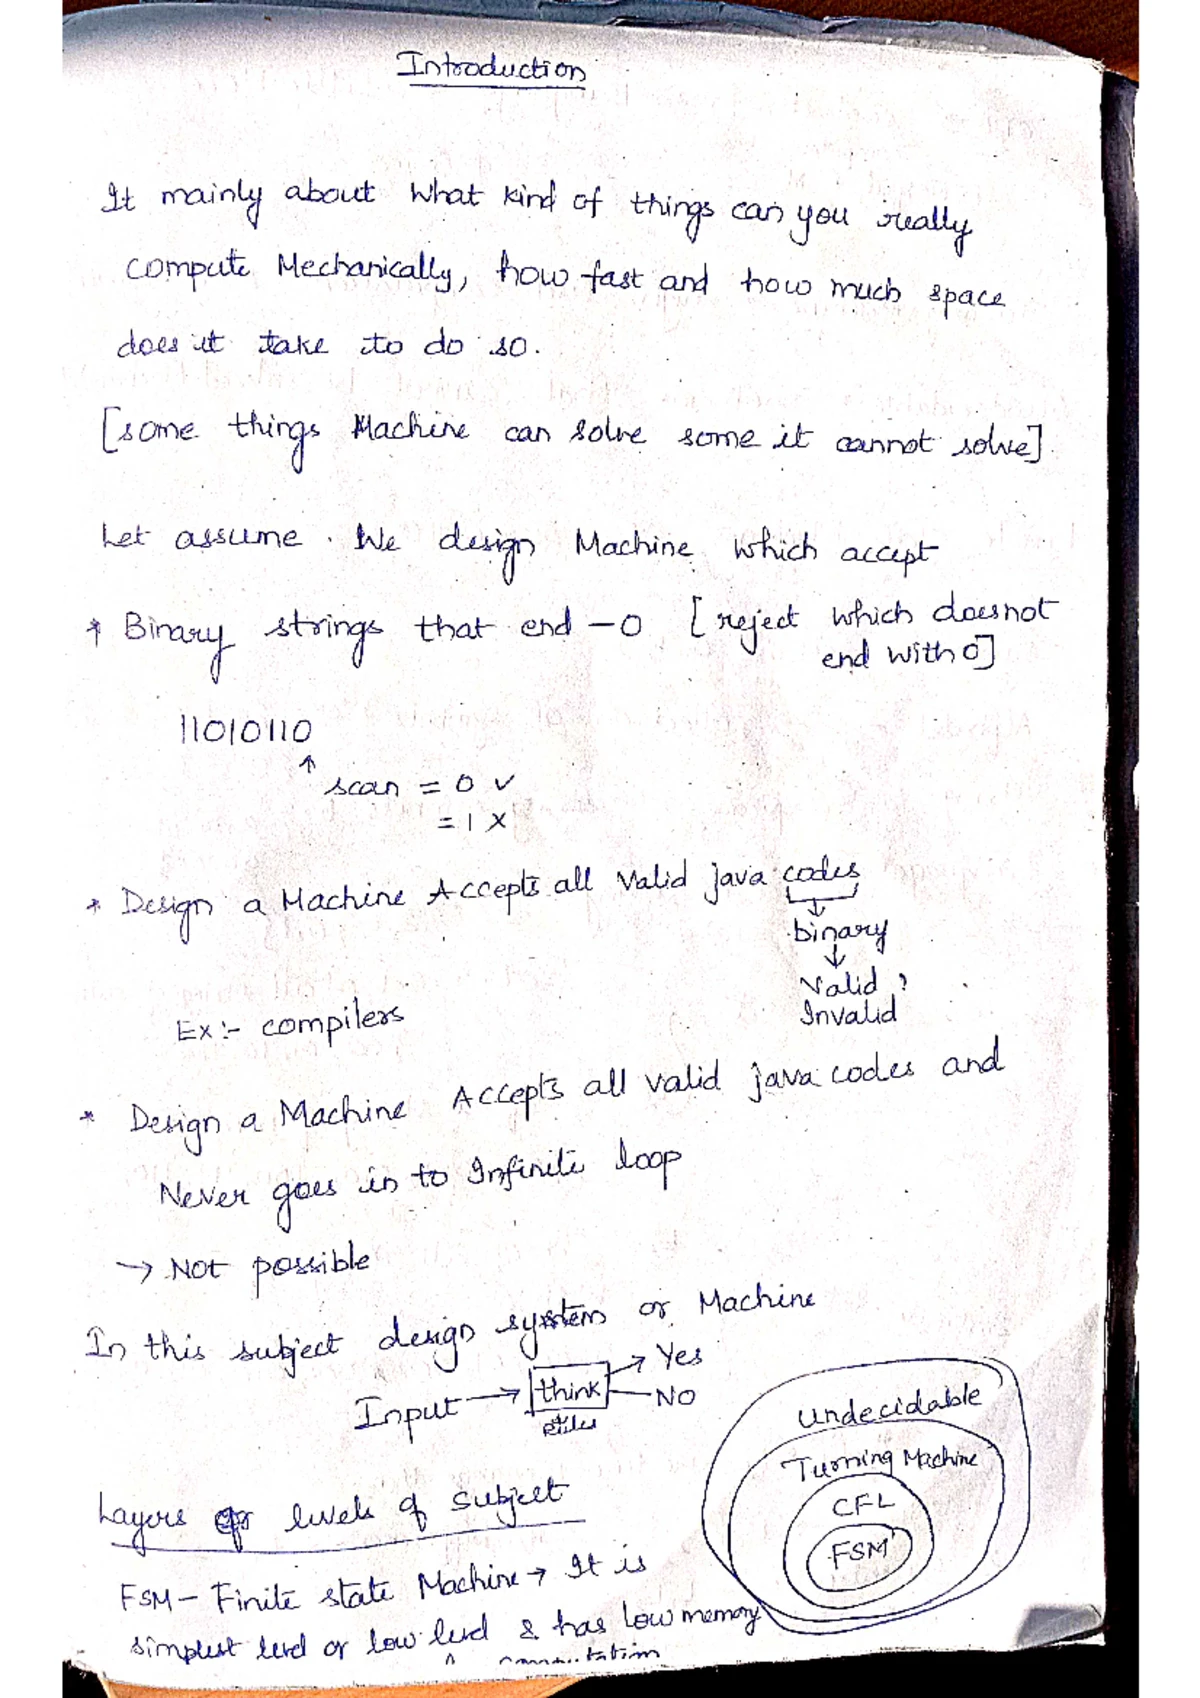 Introduction
It mainly about What kind of things can you really
compute Mechanically, how fast and how much space
does it take to do so.
[some things Machine can solve some it cannot solve].
Let assume. We design Machine which accept
* Binary strings that end - 0 [reject which doesnot
end with 0]
11010110
↑
scan = 0 ✓
= 1 X
* Design a Machine Accepts all Valid java codes
↓
binary
↓
Valid ?
Invalid
Ex:- compilers
* Design a Machine Accepts all valid java codes and
Never goes in to Infinite loop
→ Not possible
In this subject design system or Machine
Input → think → Yes
No
Layers or levels of subject
Undecidable
Turning Machine
CFL
FSM
FSM - Finite state Machine → It is
simplest level or low level & has low memory
computation